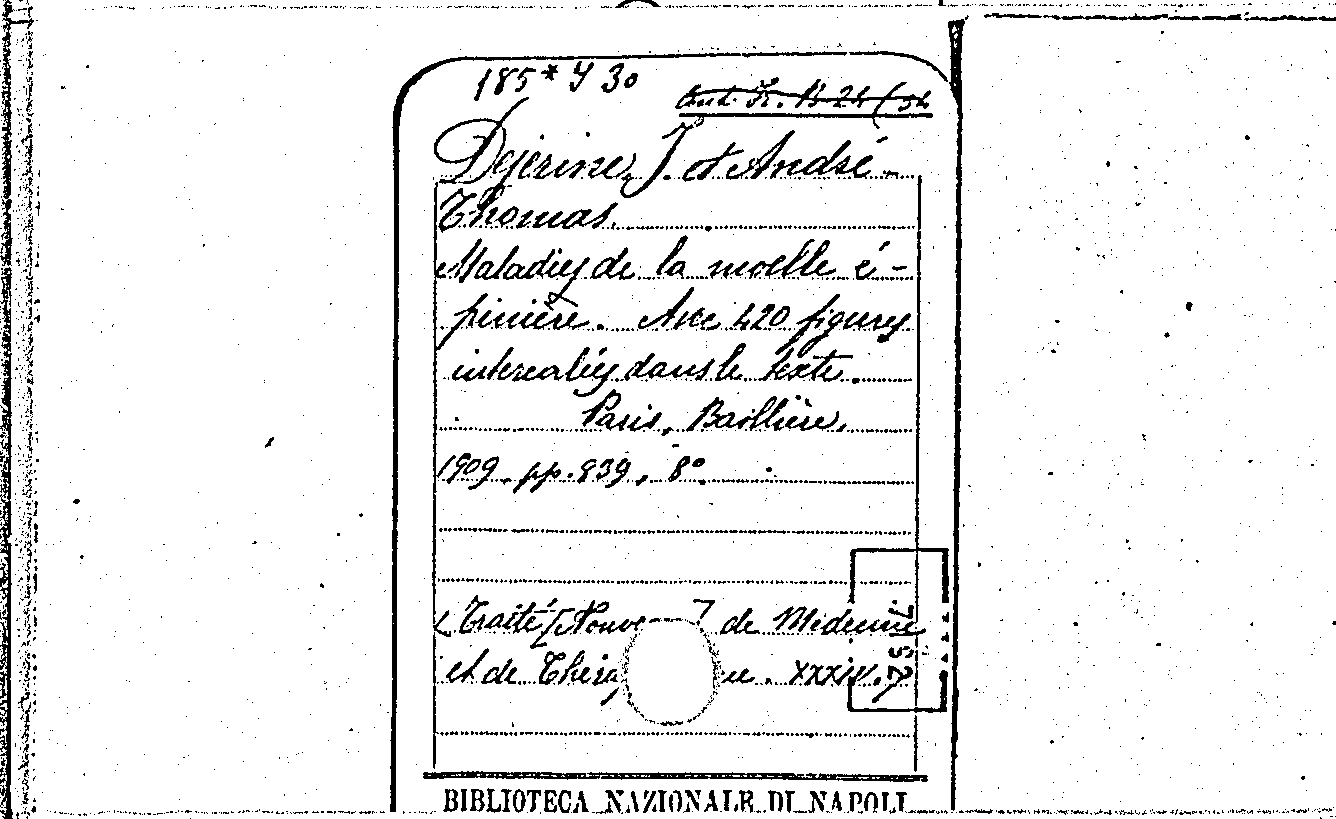 185* Y 30
Dejerine, J. et André
Thomas.
Maladies de la moelle é-
pinière. Avec 420 figures
intercalées dans le texte.
Paris, Baillière,
1909. pp. 839, 8°.
(Traité [Nouve ] de Médecine
et de Théra ue. XXXIV.)
BIBLIOTECA NAZIONALE DI NAPOLI